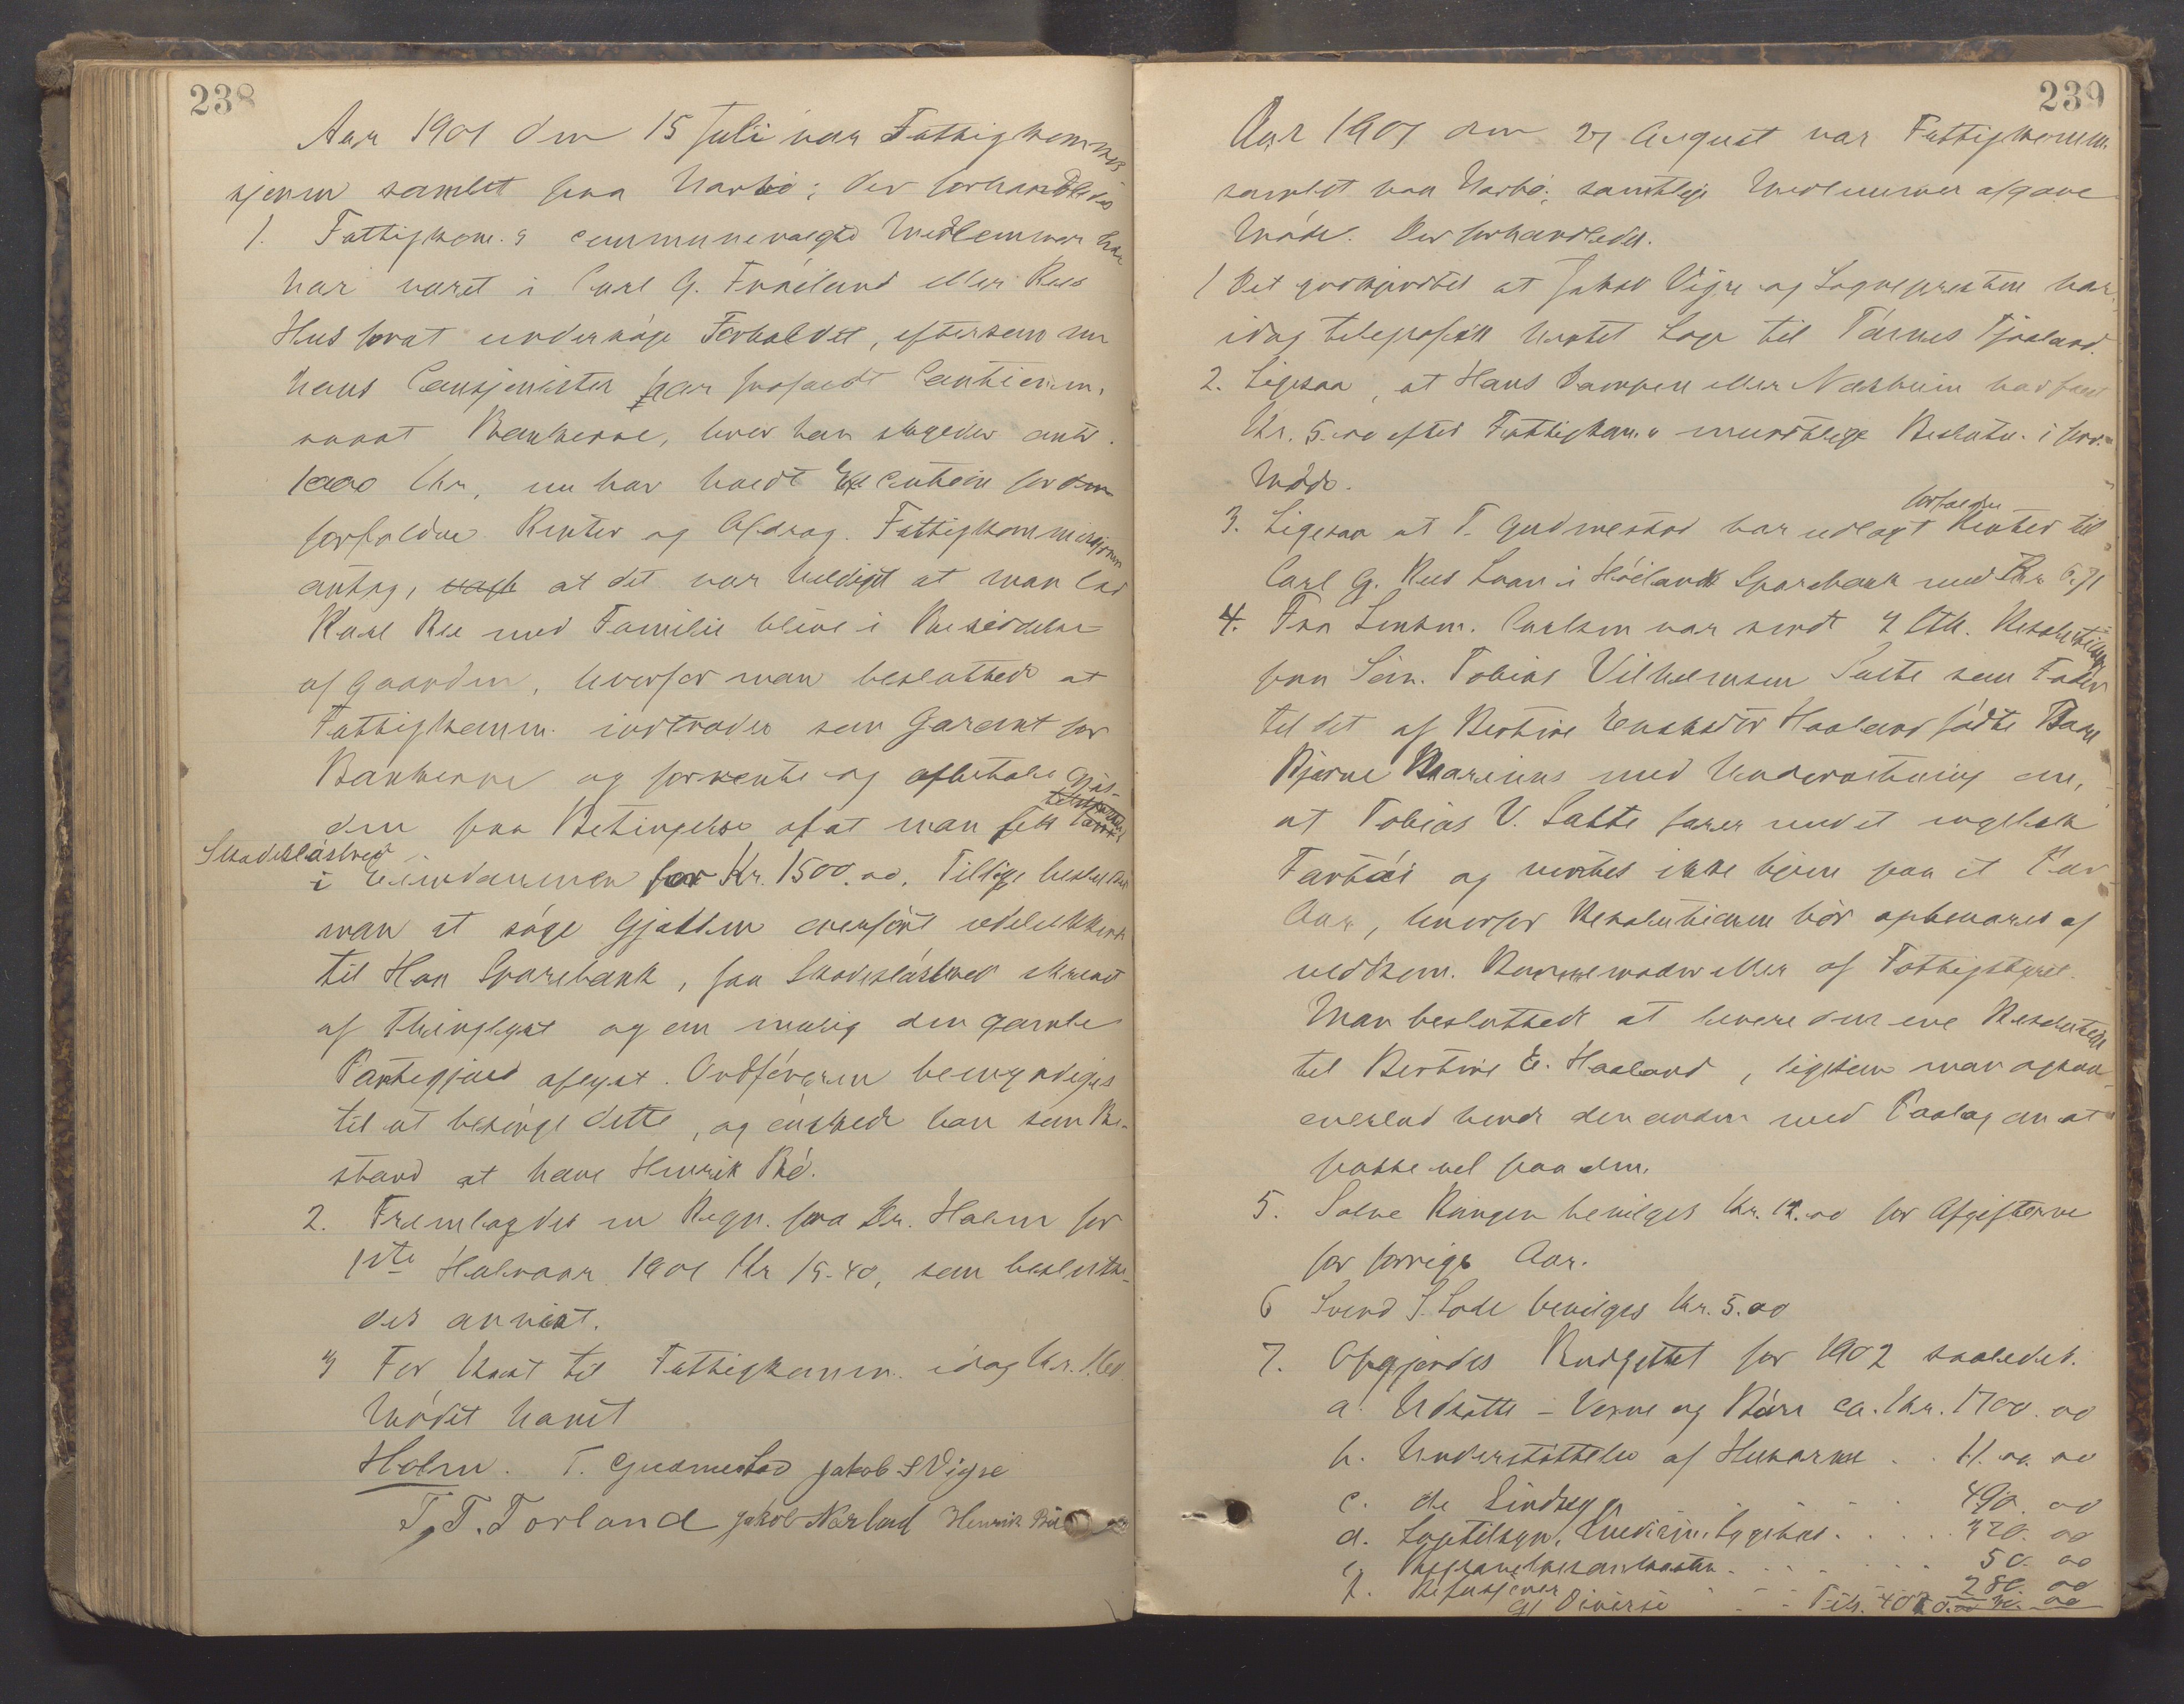 238
Aar 1901 den 15 Juli var Fattigkommis
sjonen samlet paa Narbø; der forhandledes
1. Fattigkom.s communevalgte Medlemmer har
har været i Carl G. Frøiland eller Rees
Hus forat undersøge Forholdet, eftersom nu
hans Cautionister har
Bankerne, hvor han skylder
1000 Kr, nu har havt Execution for den
forfaldne Renter og Afdrag. Fattigkommissjonen
antog, at det var heldigst at man lod
Karl Ree med Familie blive i Besiddelse
af Gaarden, hvorfor man besluttede at
Fattigkomm. indtræder som Garant for
Bankerne og forrente og afbetale Gjæl-
den paa Betingelse af at man fik
Skadesløsbrev
i Eiendommen for Kr. 1500.00. Tillige beslutted
man at søge Gjælden overført udelukkende
til Haa Sparebank, faa Skadesløsbrevet skrevet
af Thinglyst og om mulig den gamle
Pantegjæld aflyst. Ordføreren bemyndiges
til at besørge dette, og ønskede han som Bi-
stand at have Henrik Bø.
2. Fremlagdes en Regn. fra Dr. Holm for
1ste Halvaar 1901 Kr 19.40, som beslutte-
des anvist.
3 For Kost til Fattigkomm. idag Kr.
Mødet hævet
Holm. T. Gudmestad Jakob S Vigre
T. T. Torland Jakob Nærland Henrik Bø
239
Aar 1901 den 27 August var Fattigkomm.
samlet paa Narbø; samtlige Medlemmer afgave
Møde. Der forhandledes.
1 Det godkjendtes at Jakob Vigre og Sognepresten har
idag telegrafisk hentet Læge til Tørnes Tjaaland.
2. Ligesaa, at Hans eller Næsheim har faaet
Kr. 5.00 efter Fattigkom.s mundtlige Beslutn. i forr.
Møde.
forfaldne
3. Ligesaa at T. Gudmestad har udlagt Renter til
Carl G. Rees Laan i Høilands Sparebank med Kr
4. Fra Lensm. Carlsen var sendt 2 Stk. Resolutioner
paa Søm. Tobias Vilhelmsen Salte som Fader
til det af Bertine Enoksdtr Haaland fødte Barn
Bjarne Marinus med Underretning om,
at Tobias V. Salte farer med et engelsk
Fartøi og ventes ikke hjem paa et Par
Aar, hvorfor Resolutionen bør opbevares af
vedkom. Barnemoder eller af Fattigstyret.
Man besluttede at levere den ene Resolution
til Bertine E. Haaland, ligesom man ogsaa
overlod hende den anden med Paalæg om at
passe vel paa den.
5. Salve Ringen bevilges Kr. 12.00 for Afgifterne
for forrige Aar.
6 Svend S. Lode bevilges Kr. 5.00
7. Opgjordes Budgettet for 1902 saaledes.
a. Udsatte - Voxne og Børn ca. Kr. 1700.00
b. Understøttelse af Husarme . . 11.00.00
c. de Sindssyge . . . 490.00
d. Lægetilsyn, Medicin, Sygehus . . . . 320.00
e. . . . . 50.00
f. Refusjoner . . . 280.00
g) Diverse - - Tils.